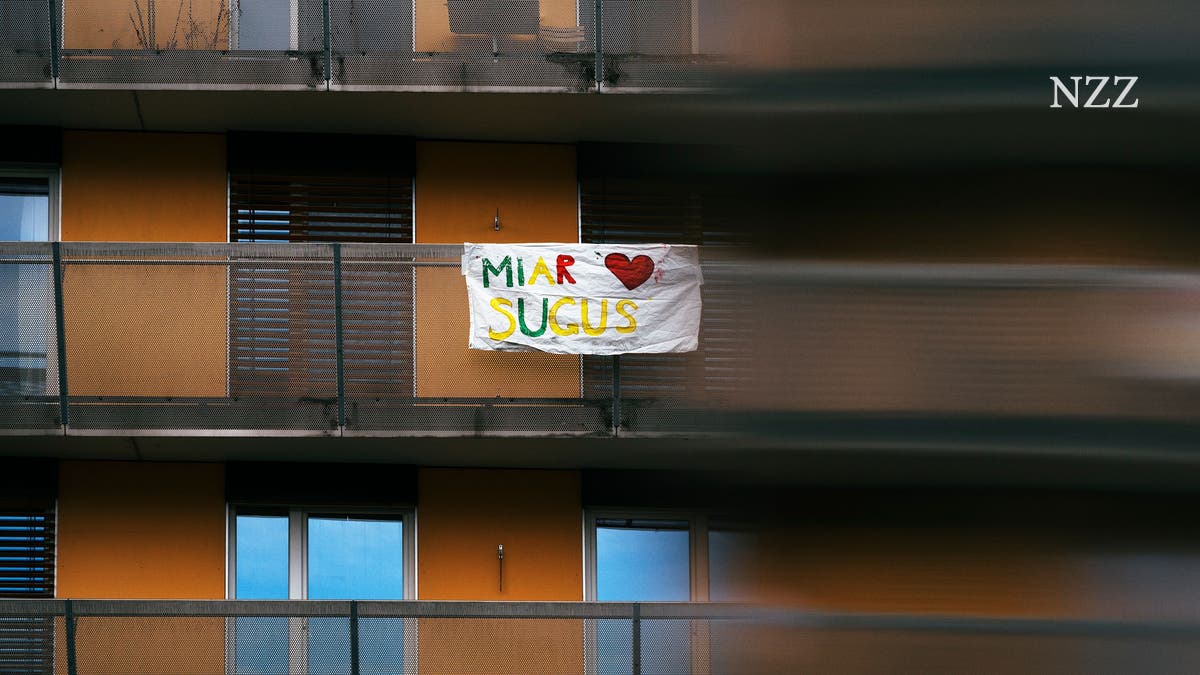 NZZ
MIAR ❤
SUGUS